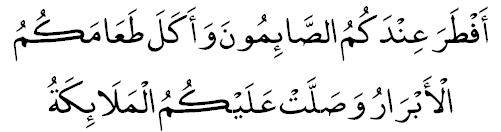 أَفْطَرَ عِنْدَكُمُ الصَّائِمُونَ وَأَكَلَ طَعَامَكُمُ
الْأَبْرَارُ وَصَلَّتْ عَلَيْكُمُ الْمَلَائِكَةُ